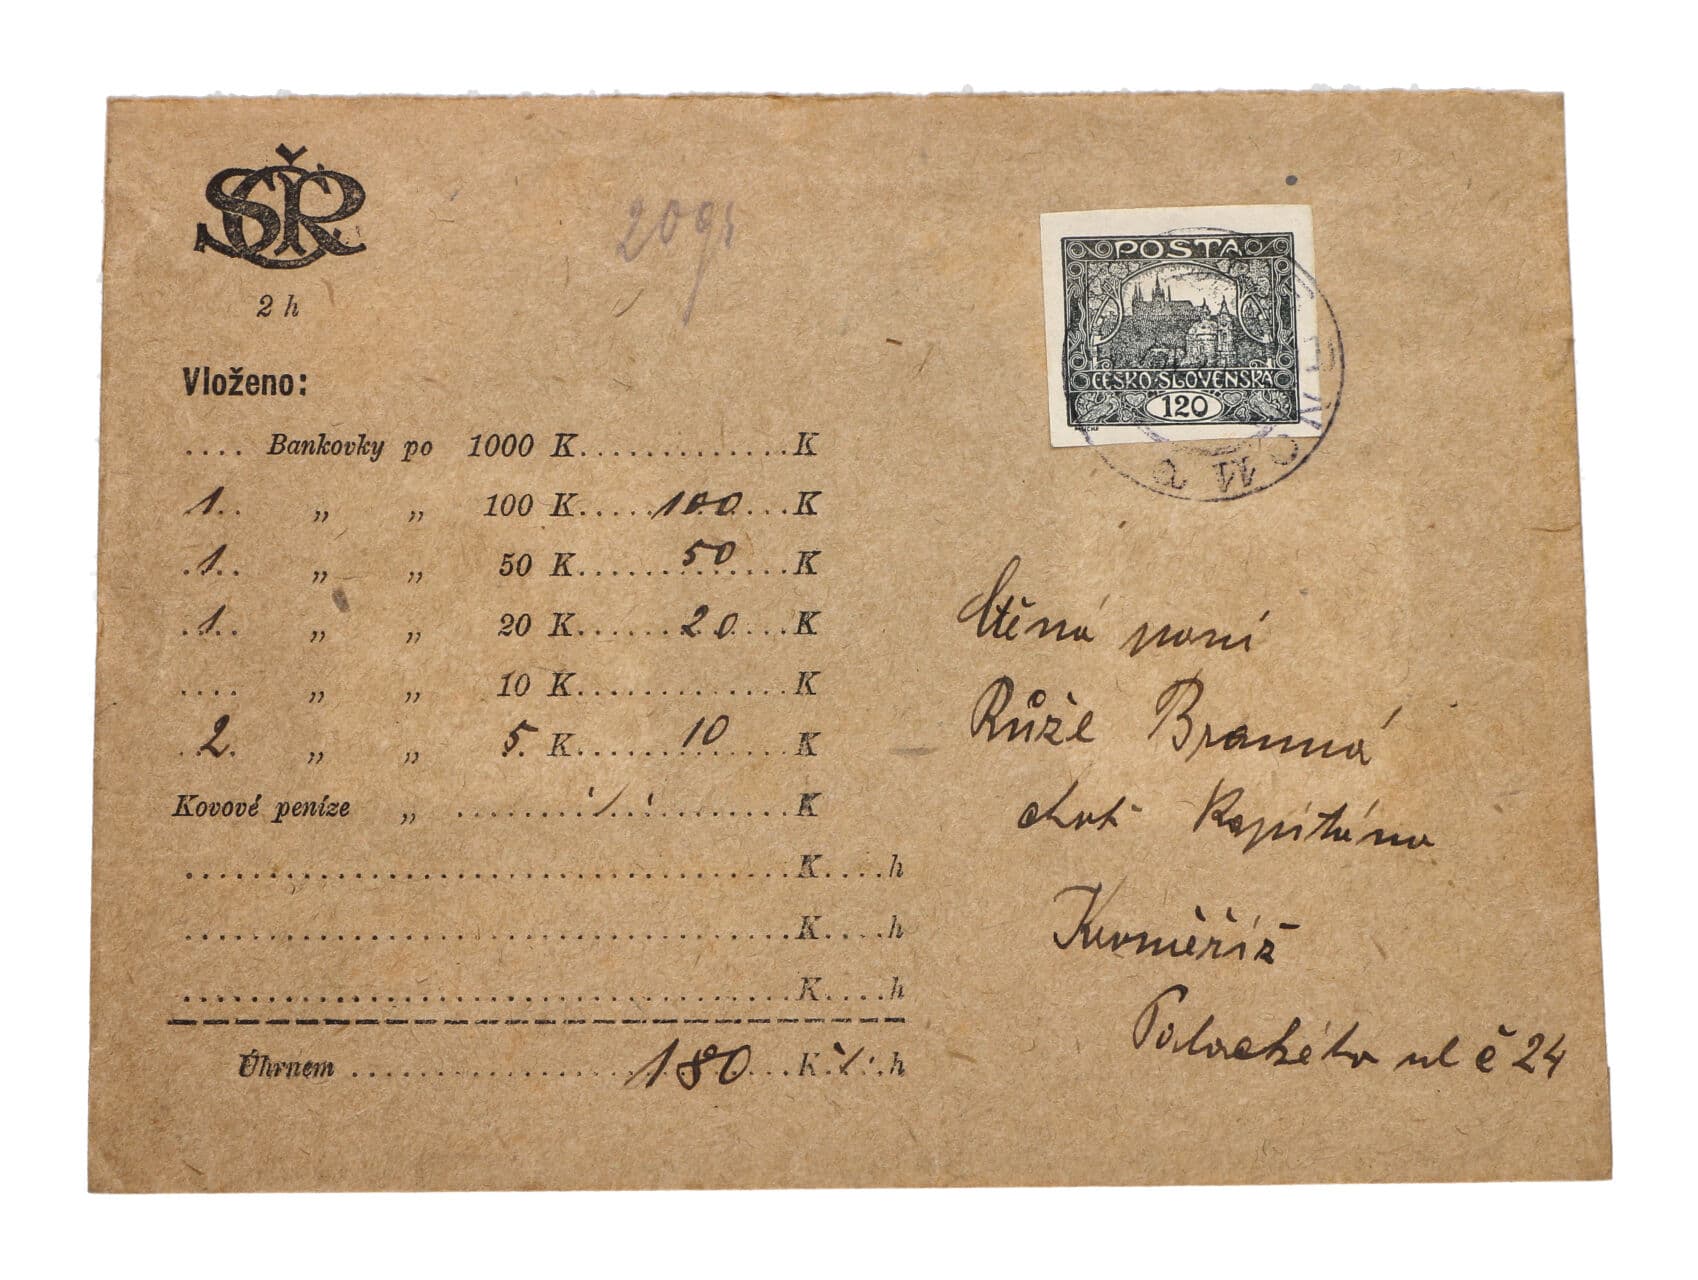 SČR
2 h
20 gr
Vloženo:
.... Bankovky po 1000 K.............K
1.. „ „ 100 K.....100...K
.1.. „ „ 50 K......50....K
.1.. „ „ 20 K......20....K
.... „ „ 10 K.............K
.2. „ „ 5 K......10.....K
Kovové peníze „ ........./.........K
K....h
K....h
K....h
Úhrnem ..................180...K./.h
POSTA
ČESKO·SLOVENSKÁ
120
MUCHA
Ctěná paní
Růže Branná
choť Kapitána
Kroměříž
Palackého ul č 24